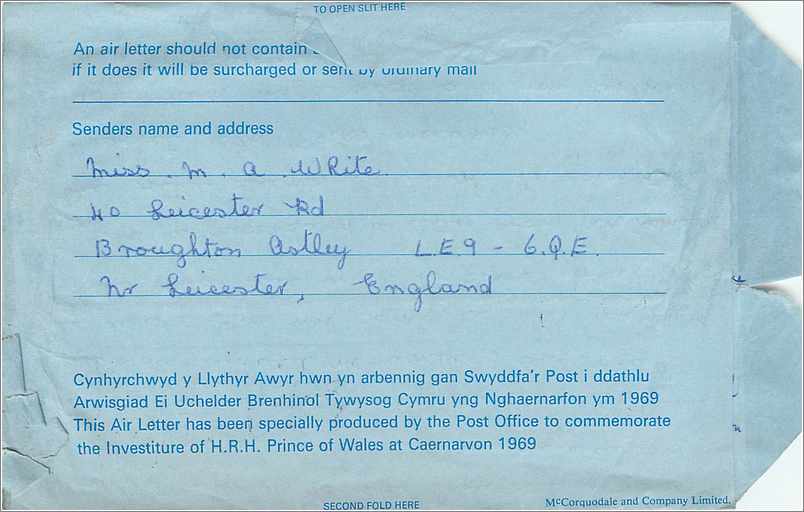 TO OPEN SLIT HERE
An air letter should not contain
if it does it will be surcharged or sent by ordinary mail
Senders name and address
Miss. M. A. White.
40 Leicester Rd
Broughton Astley L.E.9 - 6.Q.E.
Nr Leicester, England
Cynhyrchwyd y Llythyr Awyr hwn yn arbennig gan Swyddfa'r Post i ddathlu
Arwisgiad Ei Uchelder Brenhinol Tywysog Cymru yng Nghaernarfon ym 1969
This Air Letter has been specially produced by the Post Office to commemorate
the Investiture of H.R.H. Prince of Wales at Caernarvon 1969
SECOND FOLD HERE
McCorquodale and Company Limited.